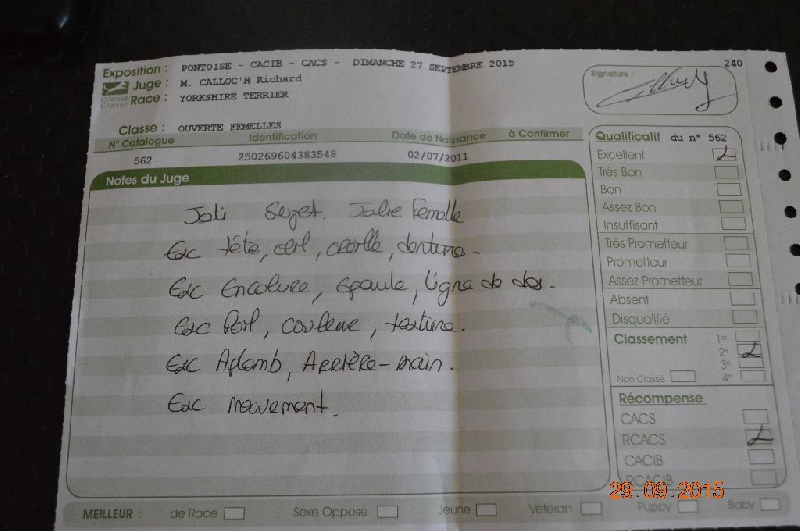 Exposition : PONTOISE - CACIB - CACS - DIMANCHE 27 SEPTEMBRE 2015
240
Juge : M. CALLOC'H Richard
Race : YORKSHIRE TERRIER
Signature :
Classe : OUVERTE FEMELLES
N° Catalogue Identification Date de Naissance à Confirmer
562 250269604383548 02/07/2011
Notes du Juge
Joli Sujet. Jolie Femelle
Exc tête, oeil, oreille, denture.
Exc Encolure, Epaule, Ligne de dos.
Exc Poil, couleur, texture.
Exc Aplomb, Arrière-main.
Exc mouvement.
Qualificatif du n° 562
Excellent
Très Bon
Bon
Assez Bon
Insuffisant
Très Prometteur
Prometteur
Assez Prometteur
Absent
Disqualifié
Classement 1er
2e
3e
Non Classé 4e
Récompense
CACS
RCACS
CACIB
RCACIB
29.09.2015
MEILLEUR : de Race Sexe Opposé Jeune Vétéran Puppy Baby